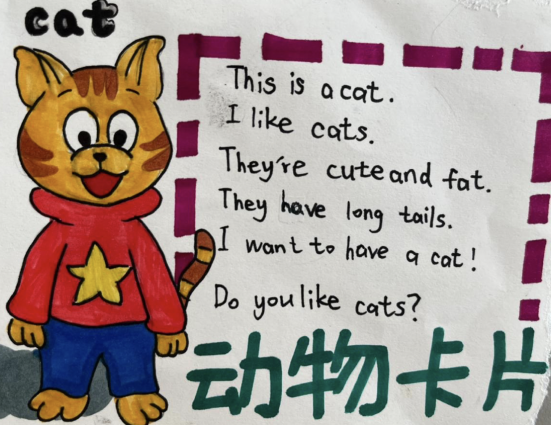 cat
This is a cat.
I like cats.
They're cute and fat.
They have long tails.
I want to have a cat!
Do you like cats?
动物卡片